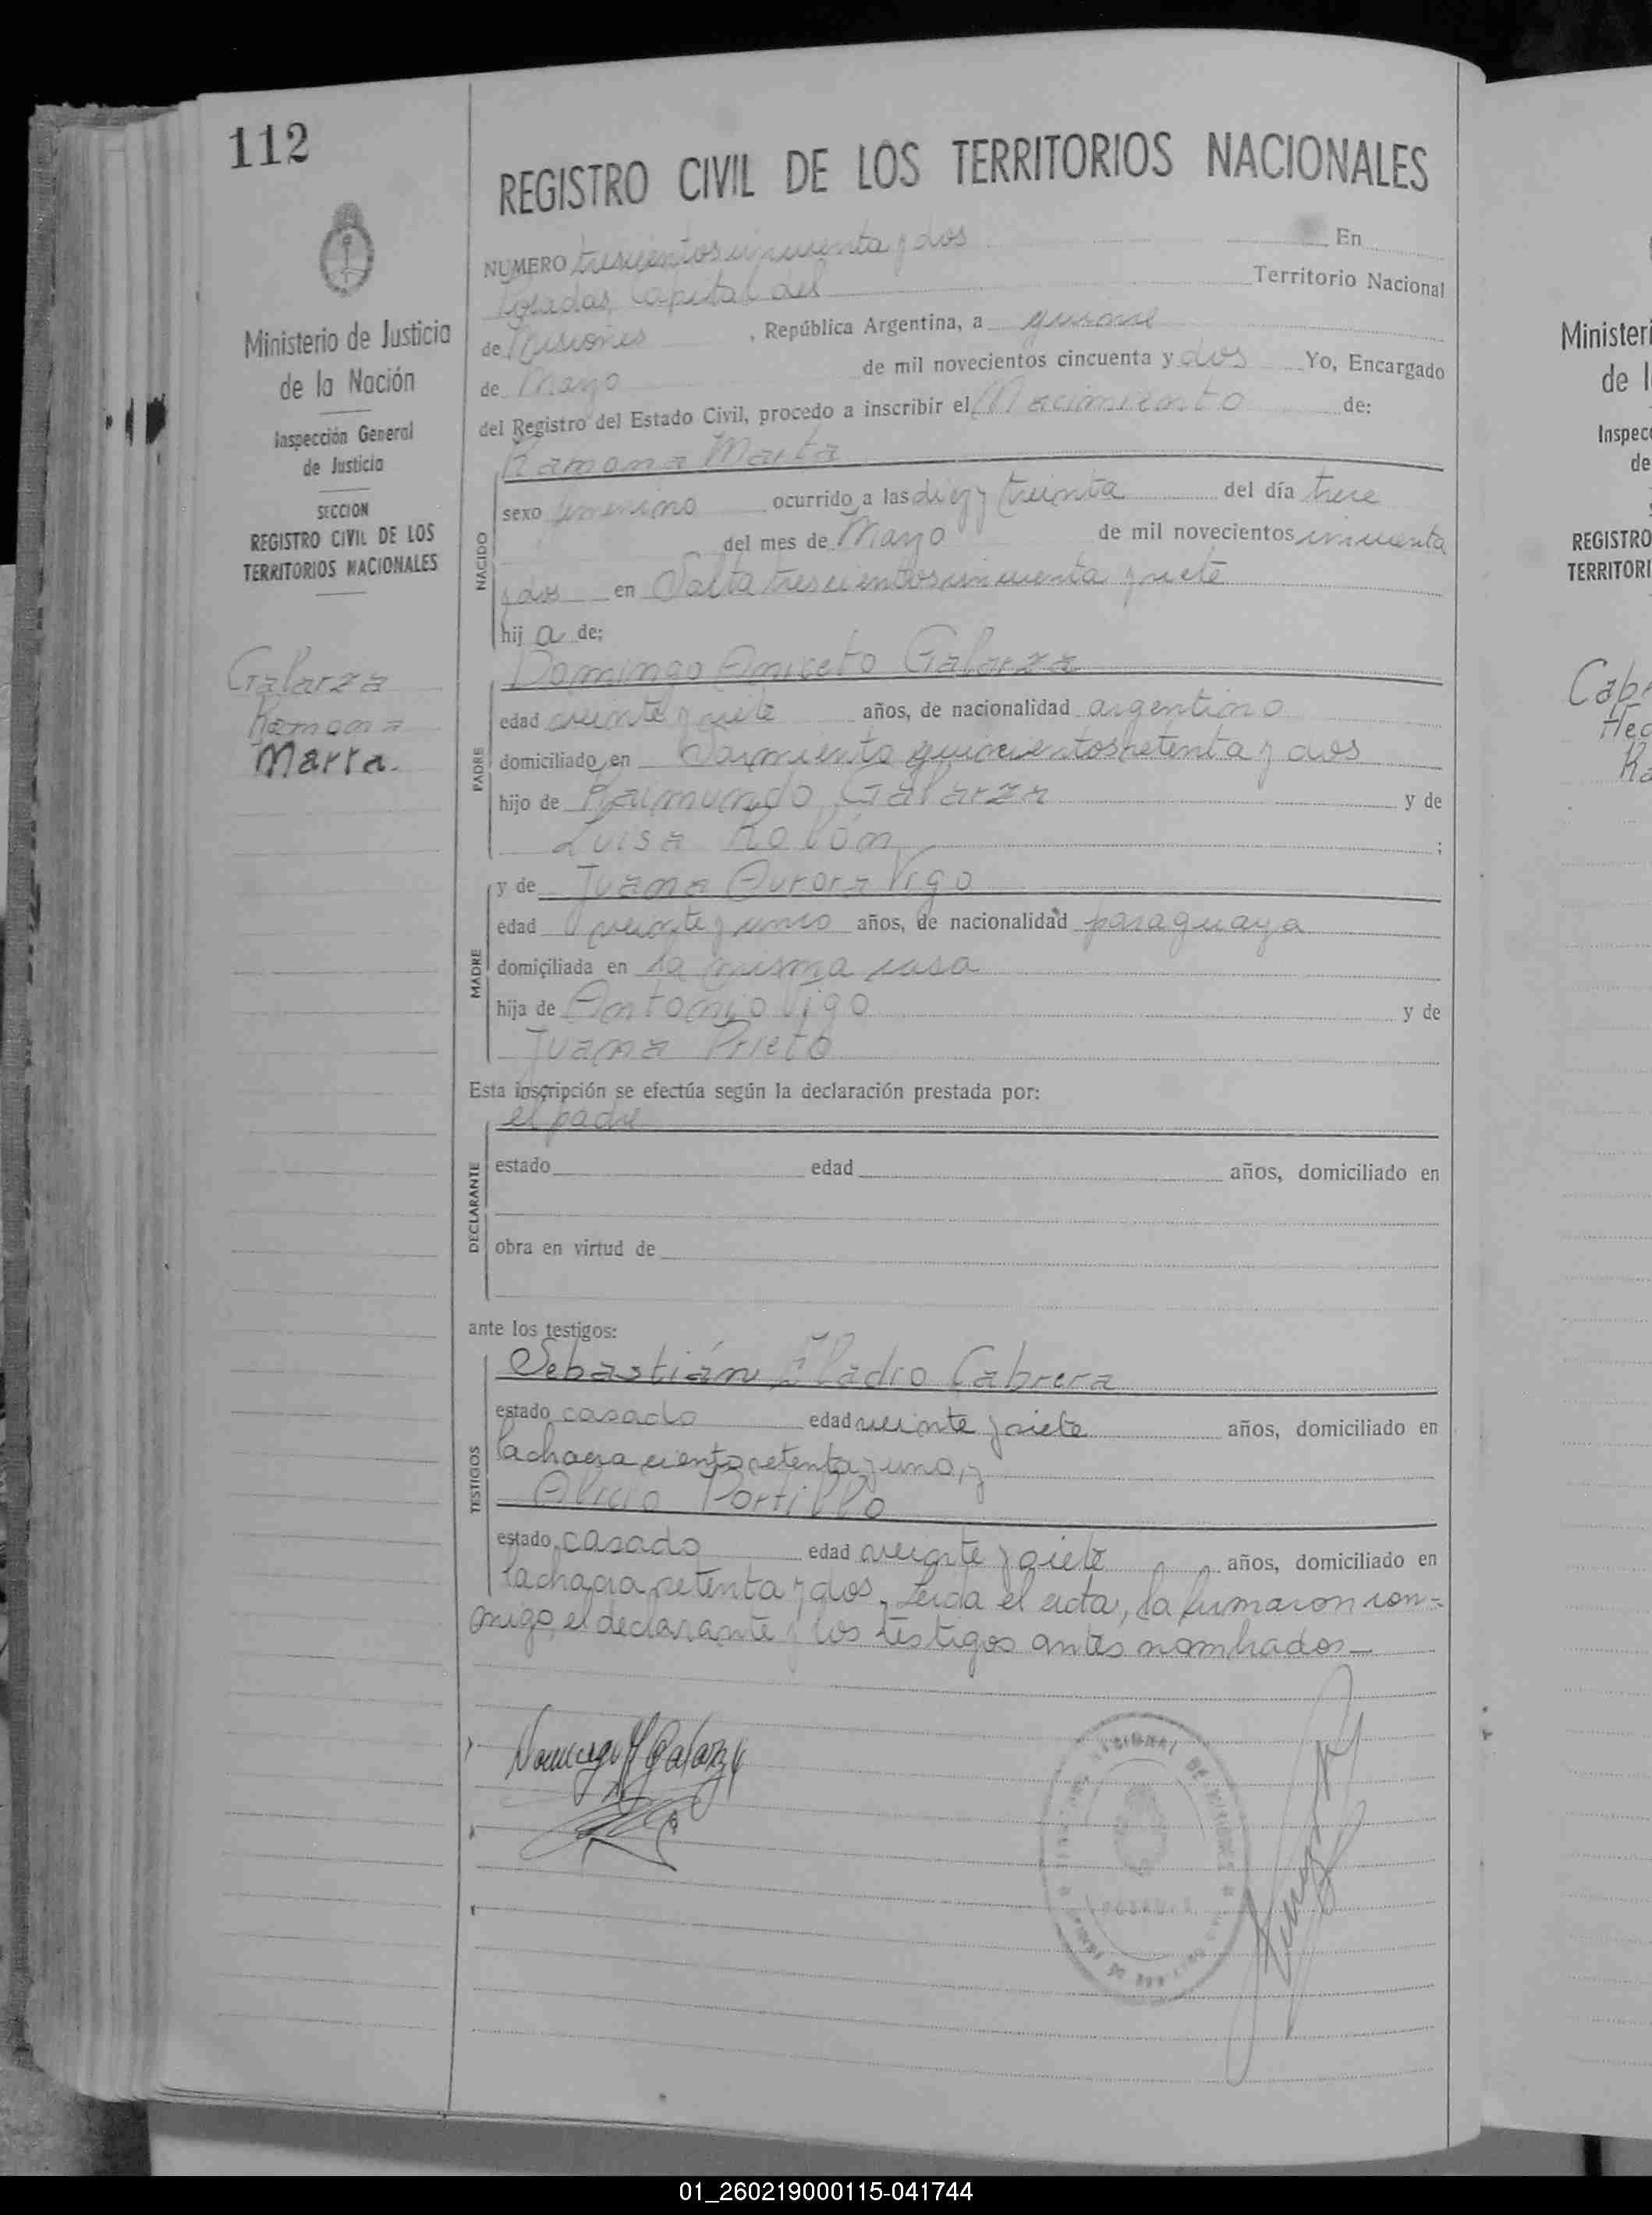 112
REGISTRO CIVIL DE LOS TERRITORIOS NACIONALES
Ministerio de Justicia
de la Nación
Inspección General
de Justicia
SECCION
REGISTRO CIVIL DE LOS
TERRITORIOS NACIONALES
Galarza
Ramona
Marta.
NUMERO trescientos cincuenta y dos En
Posadas, Capital del Territorio Nacional
de Misiones, República Argentina, a quince
de Mayo de mil novecientos cincuenta y dos Yo, Encargado
del Registro del Estado Civil, procedo a inscribir el Nacimiento de:
Ramona Marta
NACIDO
sexo femenino ocurrido a las diez y treinta del día trece
del mes de Mayo de mil novecientos cincuenta
y dos en Salta trescientos cincuenta y siete
hij a de:
Domingo Aniceto Galarza
PADRE
edad veinte y siete años, de nacionalidad argentino
domiciliado en Sarmiento quinientos setenta y dos
hijo de Raimundo Galarza y de
Luisa Rolón ;
MADRE
y de Juana Aurora Vigo
edad veinte y cinco años, de nacionalidad paraguaya
domiciliada en la misma casa
hija de Antonio Vigo y de
Juana Prieto
Esta inscripción se efectúa según la declaración prestada por:
el padre
DECLARANTE
estado edad años, domiciliado en
obra en virtud de
ante los testigos:
Sebastián Eladio Cabrera
TESTIGOS
estado casado edad veinte y siete años, domiciliado en
la chacra ciento setenta y uno, y
Alicio Portillo
estado casado edad veinte y siete años, domiciliado en
la chacra setenta y dos. Leída el acta, la firmaron con-
migo, el declarante y los testigos antes nombrados—
Domingo A Galarza
POSADAS
Ministeri
de l
Inspec
de
REGISTRO
TERRITORI
Cabr
Hec
Ra
01_260219000115-041744